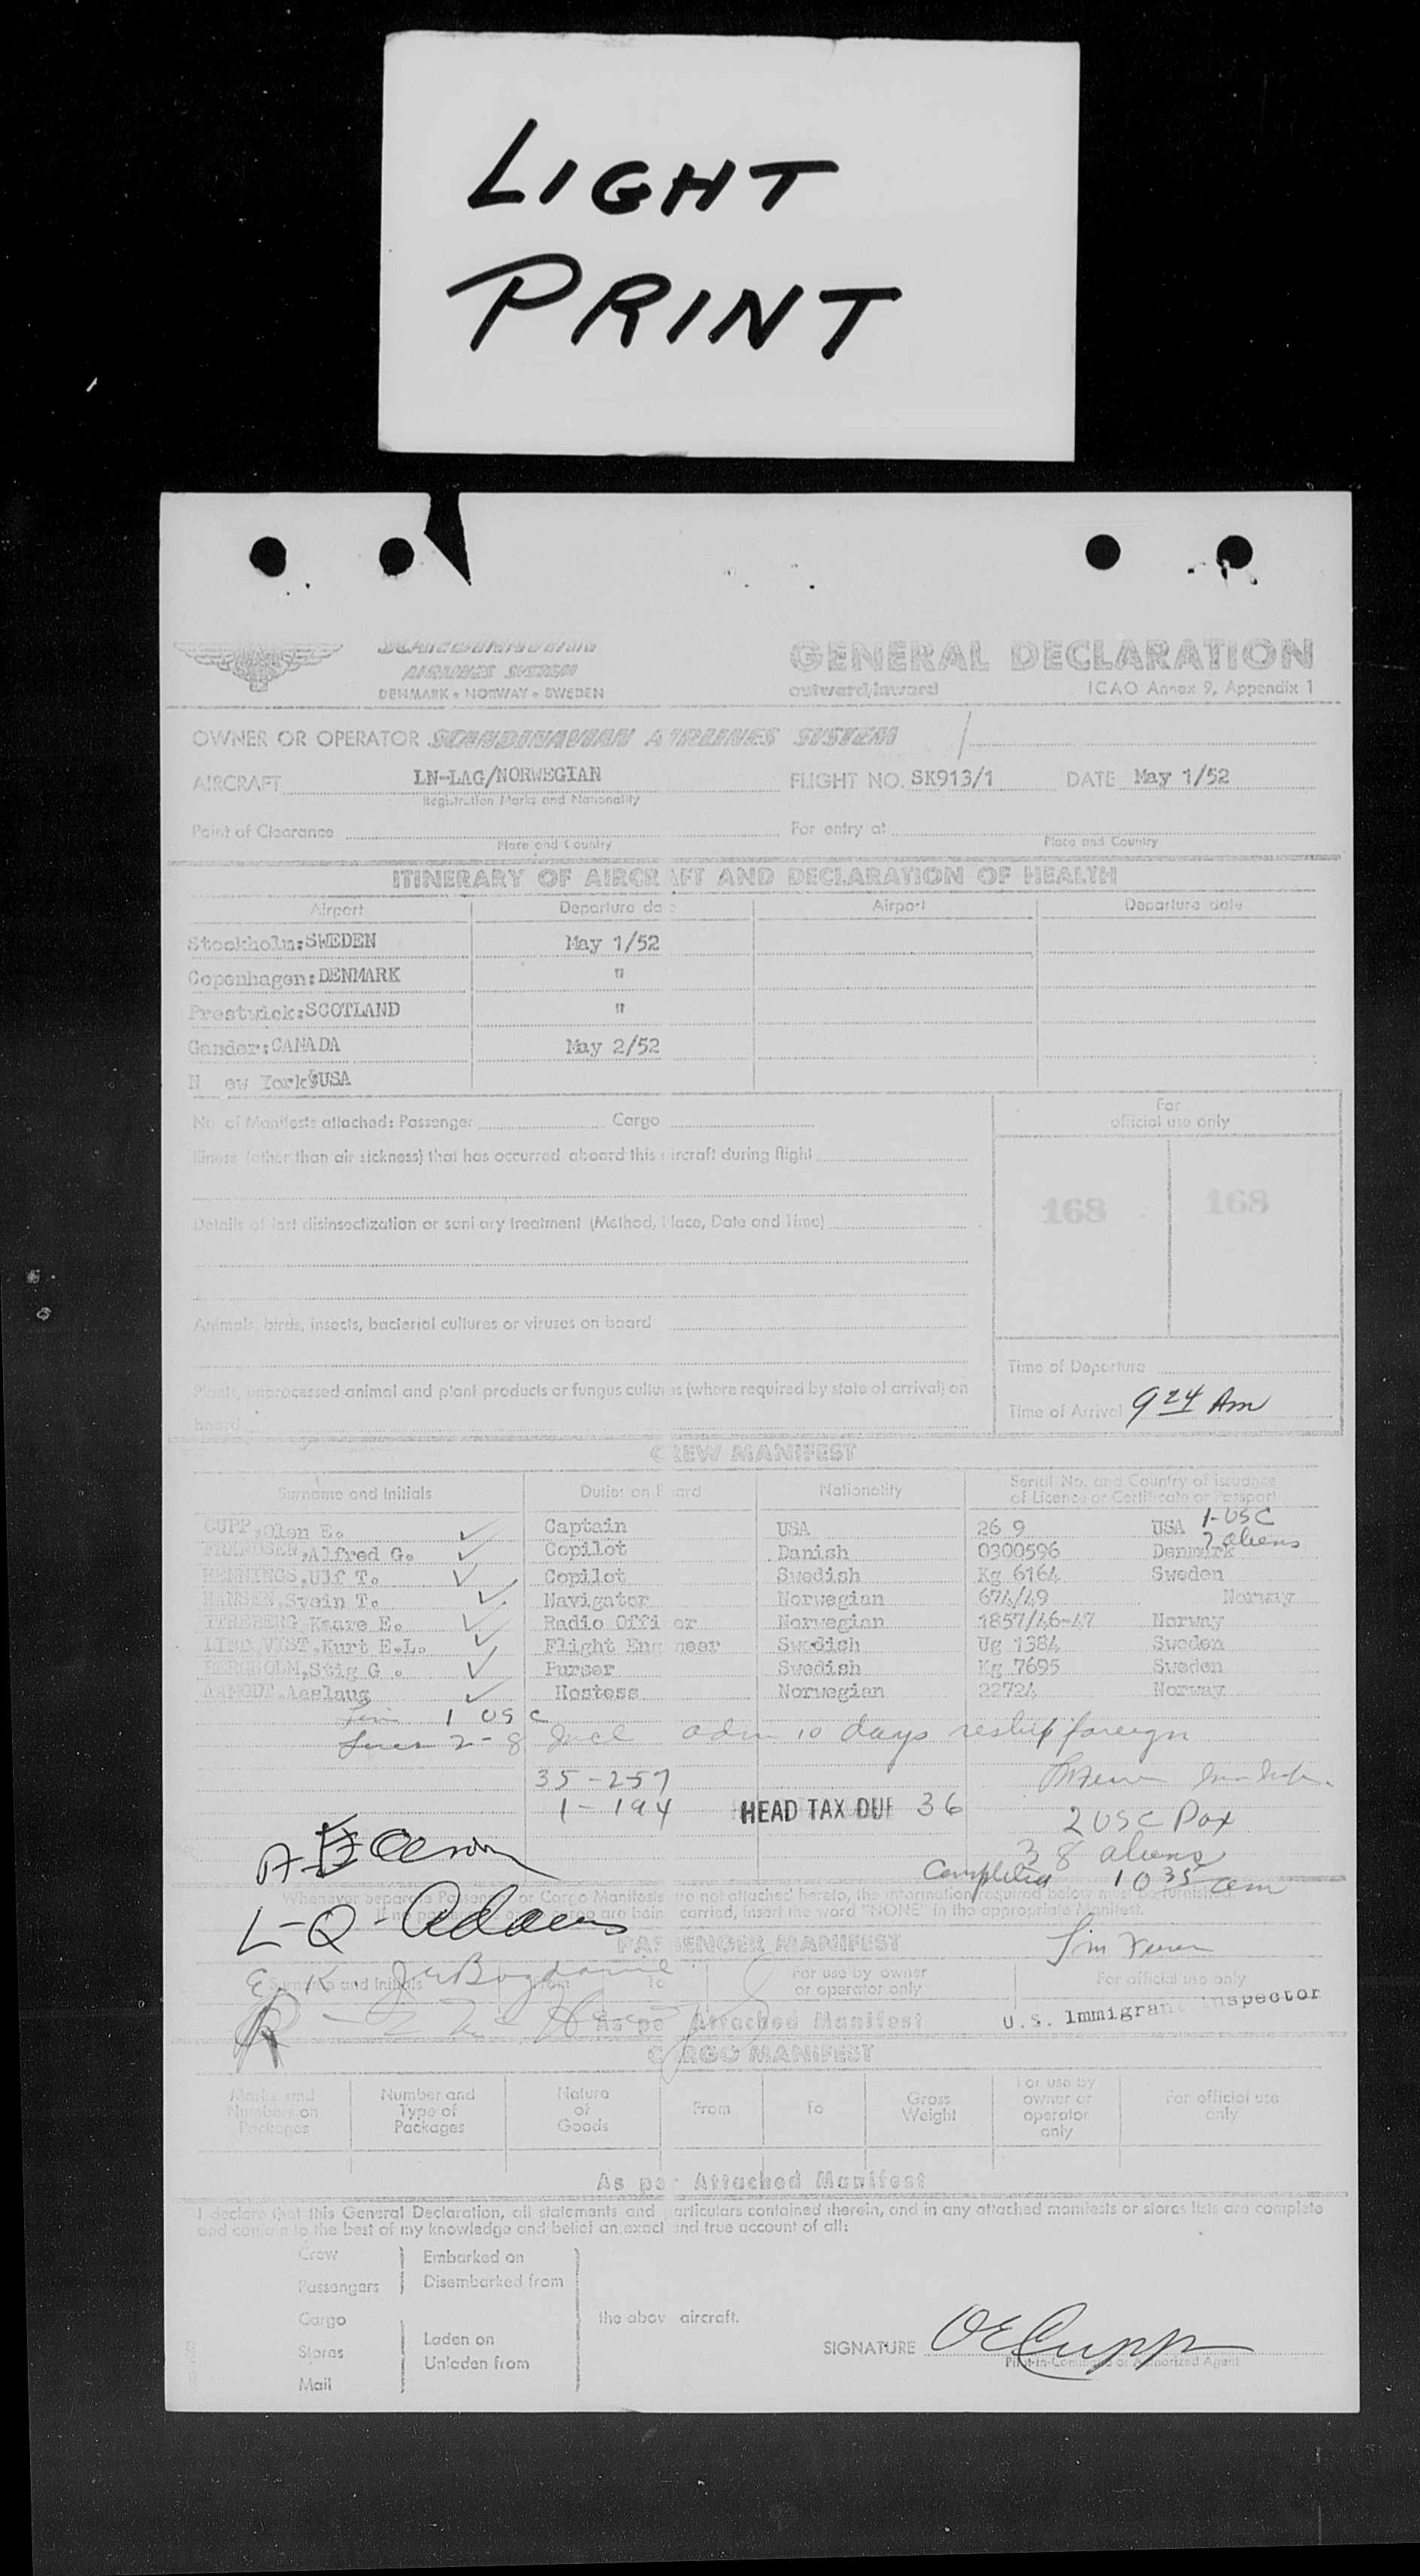 LIGHT
PRINT
SCANDINAVIAN
AIRLINES SYSTEM
DENMARK • NORWAY • SWEDEN
GENERAL DECLARATION
outward/inward ICAO Annex 9, Appendix 1
OWNER OR OPERATOR SCANDINAVIAN AIRLINES SYSTEM
AIRCRAFT LN-LAG/NORWEGIAN FLIGHT NO. SK913/1 DATE May 1/52
Registration Marks and Nationality
Point of Clearance For entry at
Place and Country Place and Country
ITINERARY OF AIRCRAFT AND DECLARATION OF HEALTH
Airport Departure date Airport Departure date
Stockholm:SWEDEN May 1/52
Copenhagen:DENMARK "
Prestwick:SCOTLAND "
Gander:CANADA May 2/52
N ew York:USA
No. of Manifests attached: Passenger Cargo
For
official use only
Illness (other than air sickness) that has occurred aboard this aircraft during flight
168 168
Details of last disinsectization or sanitary treatment (Method, Place, Date and Time)
Animals, birds, insects, bacterial cultures or viruses on board
Time of Departure
Plants, unprocessed animal and plant products or fungus cultures (where required by state of arrival) on
board
Time of Arrival 9 24 Am
CREW MANIFEST
Surname and Initials Duties on Board Nationality Serial No. and Country of issuance
of Licence or Certificate or Passport
1-USC
CUPP,Olen E. Captain USA 26 9 USA
7 aliens
FRANDSEN,Alfred G. Copilot Danish 0300596 Denmark
HENNINGS,Ulf T. Copilot Swedish Kg 6164 Sweden
HANSEN,Svein T. Navigator Norwegian 674/49 Norway
YTREBERG Kaare E. Radio Officer Norwegian 1857/46-47 Norway
LINDQVIST,Kurt E.L. Flight Engineer Swedish Ug 1384 Sweden
BERGHOLM,Stig G . Purser Swedish Kg 7695 Sweden
AAMODT,Aaslaug Hostess Norwegian 22724 Norway
1 USC
2-8 Incl adm 10 days reship foreign
35-257
1-194 HEAD TAX DUE 36
2 USC Pax
38 aliens
Completed 10 35 am
Whenever separate Passenger or Cargo Manifests are not attached hereto, the information required below must be furnished.
If no passengers or cargo are being carried, insert the word "NONE" in the appropriate Manifest.
L-Q-Adams
PASSENGER MANIFEST
Surname and Initials From To For use by owner
or operator only For official use only
As per Attached Manifest
U.S. Immigrant Inspector
CARGO MANIFEST
Marks and
Numbers on
Packages
Number and
Type of
Packages
Nature
of
Goods
From
To
Gross
Weight
For use by
owner or
operator
only
For official use
only
As per Attached Manifest
I declare that this General Declaration, all statements and particulars contained therein, and in any attached manifests or stores lists are complete
and contain to the best of my knowledge and belief an exact and true account of all:
Crew
Passengers
Embarked on
Disembarked from
Cargo
Stores
Mail
Laden on
Unladen from
the above aircraft.
SIGNATURE OECupp
Pilot-in-Command or Authorized Agent